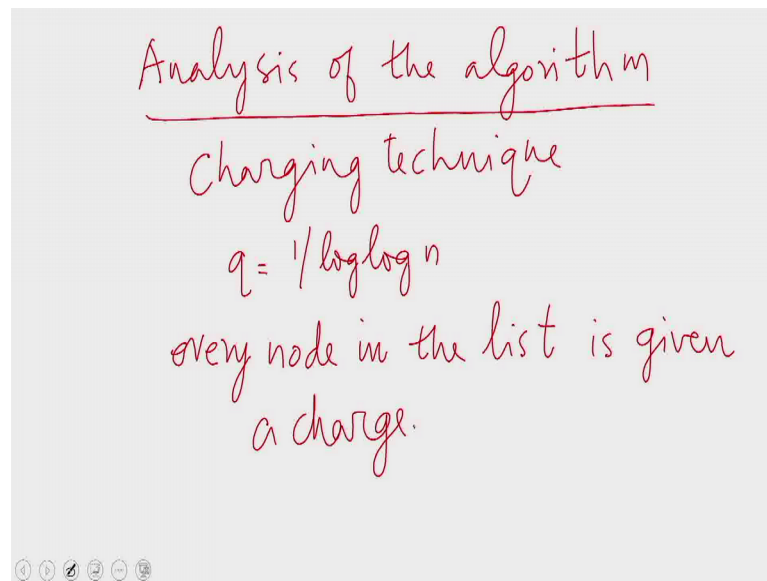 Analysis of the algorithm
Charging technique
q = 1/loglog n
every node in the list is given
a charge.